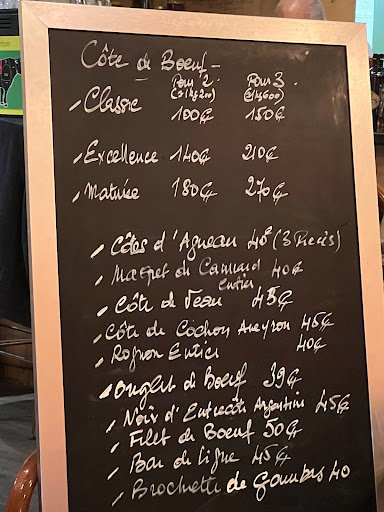 Côte de Boeuf -
Pour 2 Pour 3
(± 1kg200) (± 1kg600)
- Classic 100€ 150€
- Excellence 140€ 210€
- Maturée 180€ 270€
- Côtes d'Agneau 40€ (3 Pièces)
- Magret de Cannard 40€
entier
- Côte de Veau 45€
- Côte de Cochon Aveyron 45€
- Rognon Entier 40€
- Onglet de Boeuf 39€
- Noix d'Entrecôte Argentine 45€
- Filet de Boeuf 50€
- Bar de Ligne 45€
- Brochette de Gambas 40